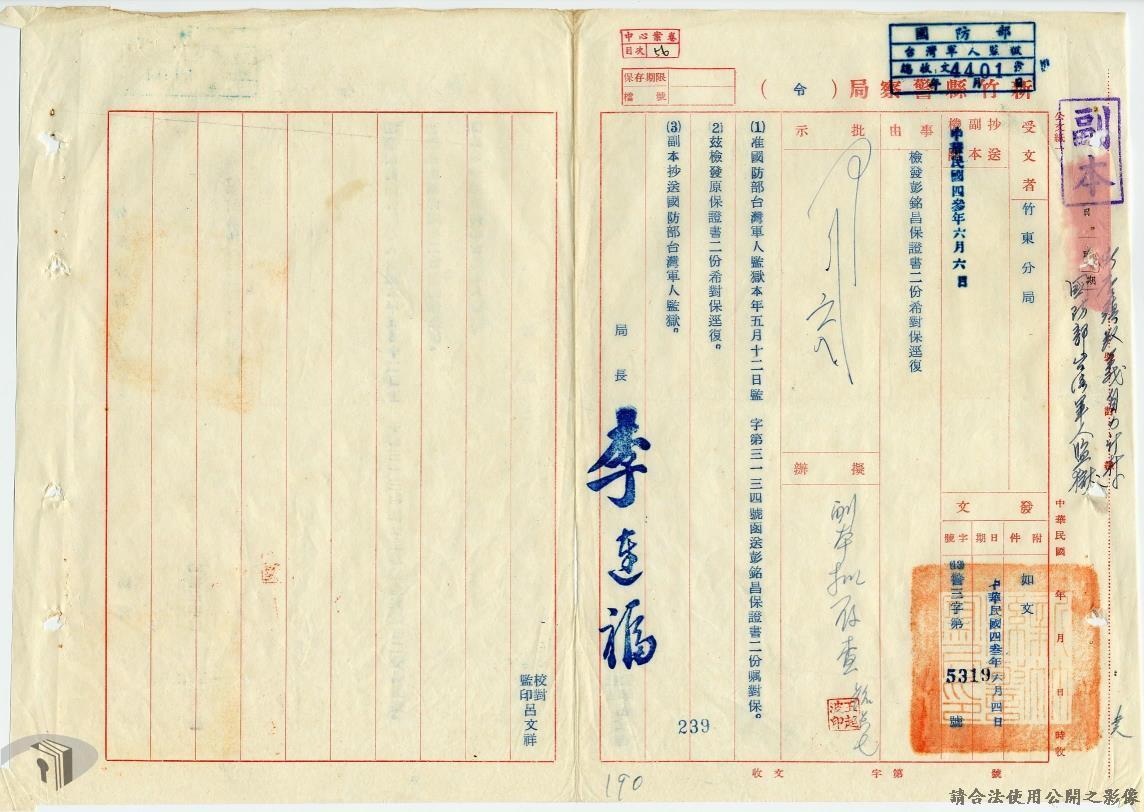 國防部
台灣軍人監獄
總收文4401號
年月日
中心案卷
目次 56
保存期限
檔號
新竹縣警察局（令）
副本
受文者 竹東分局
抄送副本機關
國防部台灣軍人監獄
中華民國四叁年六月六日
事由 檢發彭銘昌保證書二份希對保逕復
批示
擬辦
副本抄存查
發文
附件 如文
日期 中華民國四叁年六月四日
字號 警三字第5319號
中華民國 年 月 日 時收
收文 字第 號
(1)准國防部台灣軍人監獄本年五月十二日監 字第三一三四號函送彭銘昌保證書二份囑對保。
(2)茲檢發原保證書二份希對保逕復。
(3)副本抄送國防部台灣軍人監獄。
局長 李連福
校對
監印 呂文祥
239
190
請合法使用公開之影像